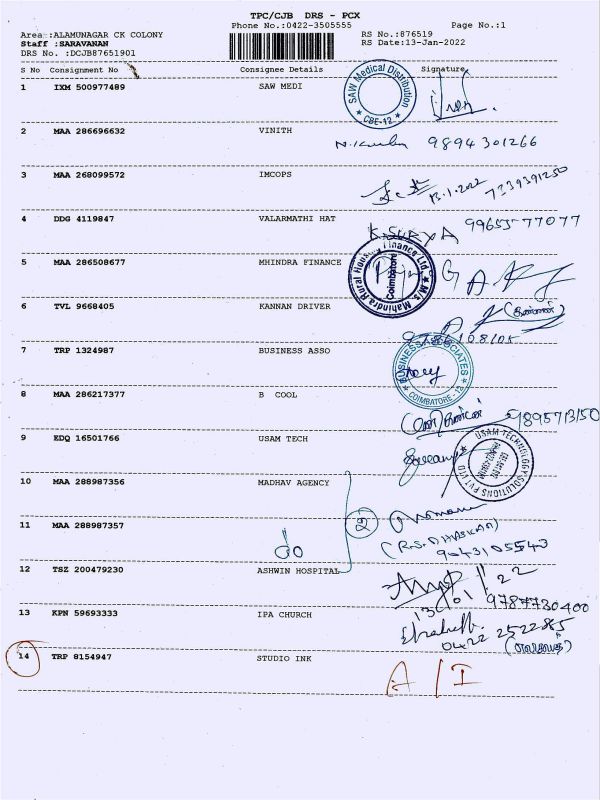 TPC/CJB DRS - PCX
Phone No.:0422-3505555
Page No.:1
Area :ALAMUNAGAR CK COLONY
RS No.:876519
Staff :SARAVANAN
RS Date:13-Jan-2022
DRS No. :DCJB87651901
S No Consignment No Consignee Details Signature
1 IXM 500977489 SAW MEDI
SAW Medical Distribution
★ CBE-12 ★
2 MAA 286696632 VINITH
9894301266
3 MAA 268099572 IMCOPS
13.1.2022 7339391250
4 DDG 4119847 VALARMATHI HAT
K.SURYA 99655-77077
5 MAA 286508677 MHINDRA FINANCE
M/s. Mahindra Rural Finance Ltd.
Coimbatore
6 TVL 9668405 KANNAN DRIVER
(கண்ணன்)
7 TRP 1324987 BUSINESS ASSO
BUSINESS ASSOCIATES
COIMBATORE - 12
8 MAA 286217377 B COOL
மணிகண்டன் 9895713150
9 EDQ 16501766 USAM TECH
USAM TECHNOLOGY SOLUTIONS PVT LTD
10 MAA 288987356 MADHAV AGENCY
2
11 MAA 288987357
(R.S. DHASKAR)
9043105543
12 TSZ 200479230 ASHWIN HOSPITAL
13/01/22
13 KPN 59693333 IPA CHURCH
9787730400
0422 2522885
14 TRP 8154947 STUDIO INK
A/I